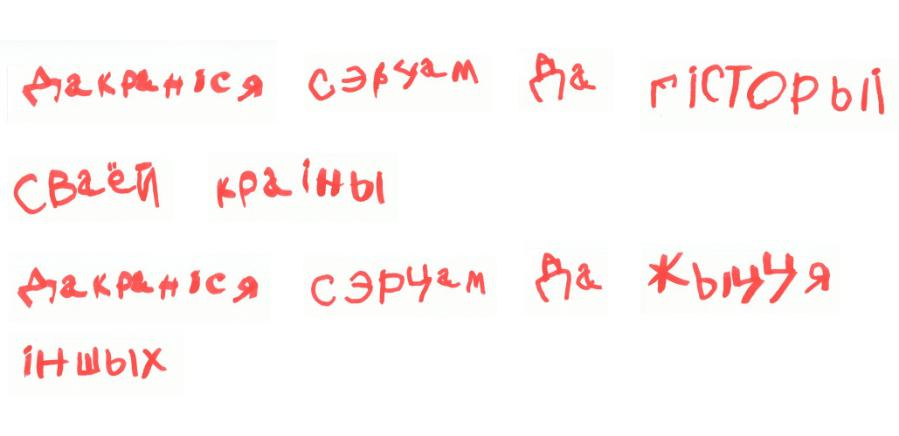 Дакраніся сэрцам да гісторыі
сваёй краіны
Дакраніся сэрцам да жыцця
іншых